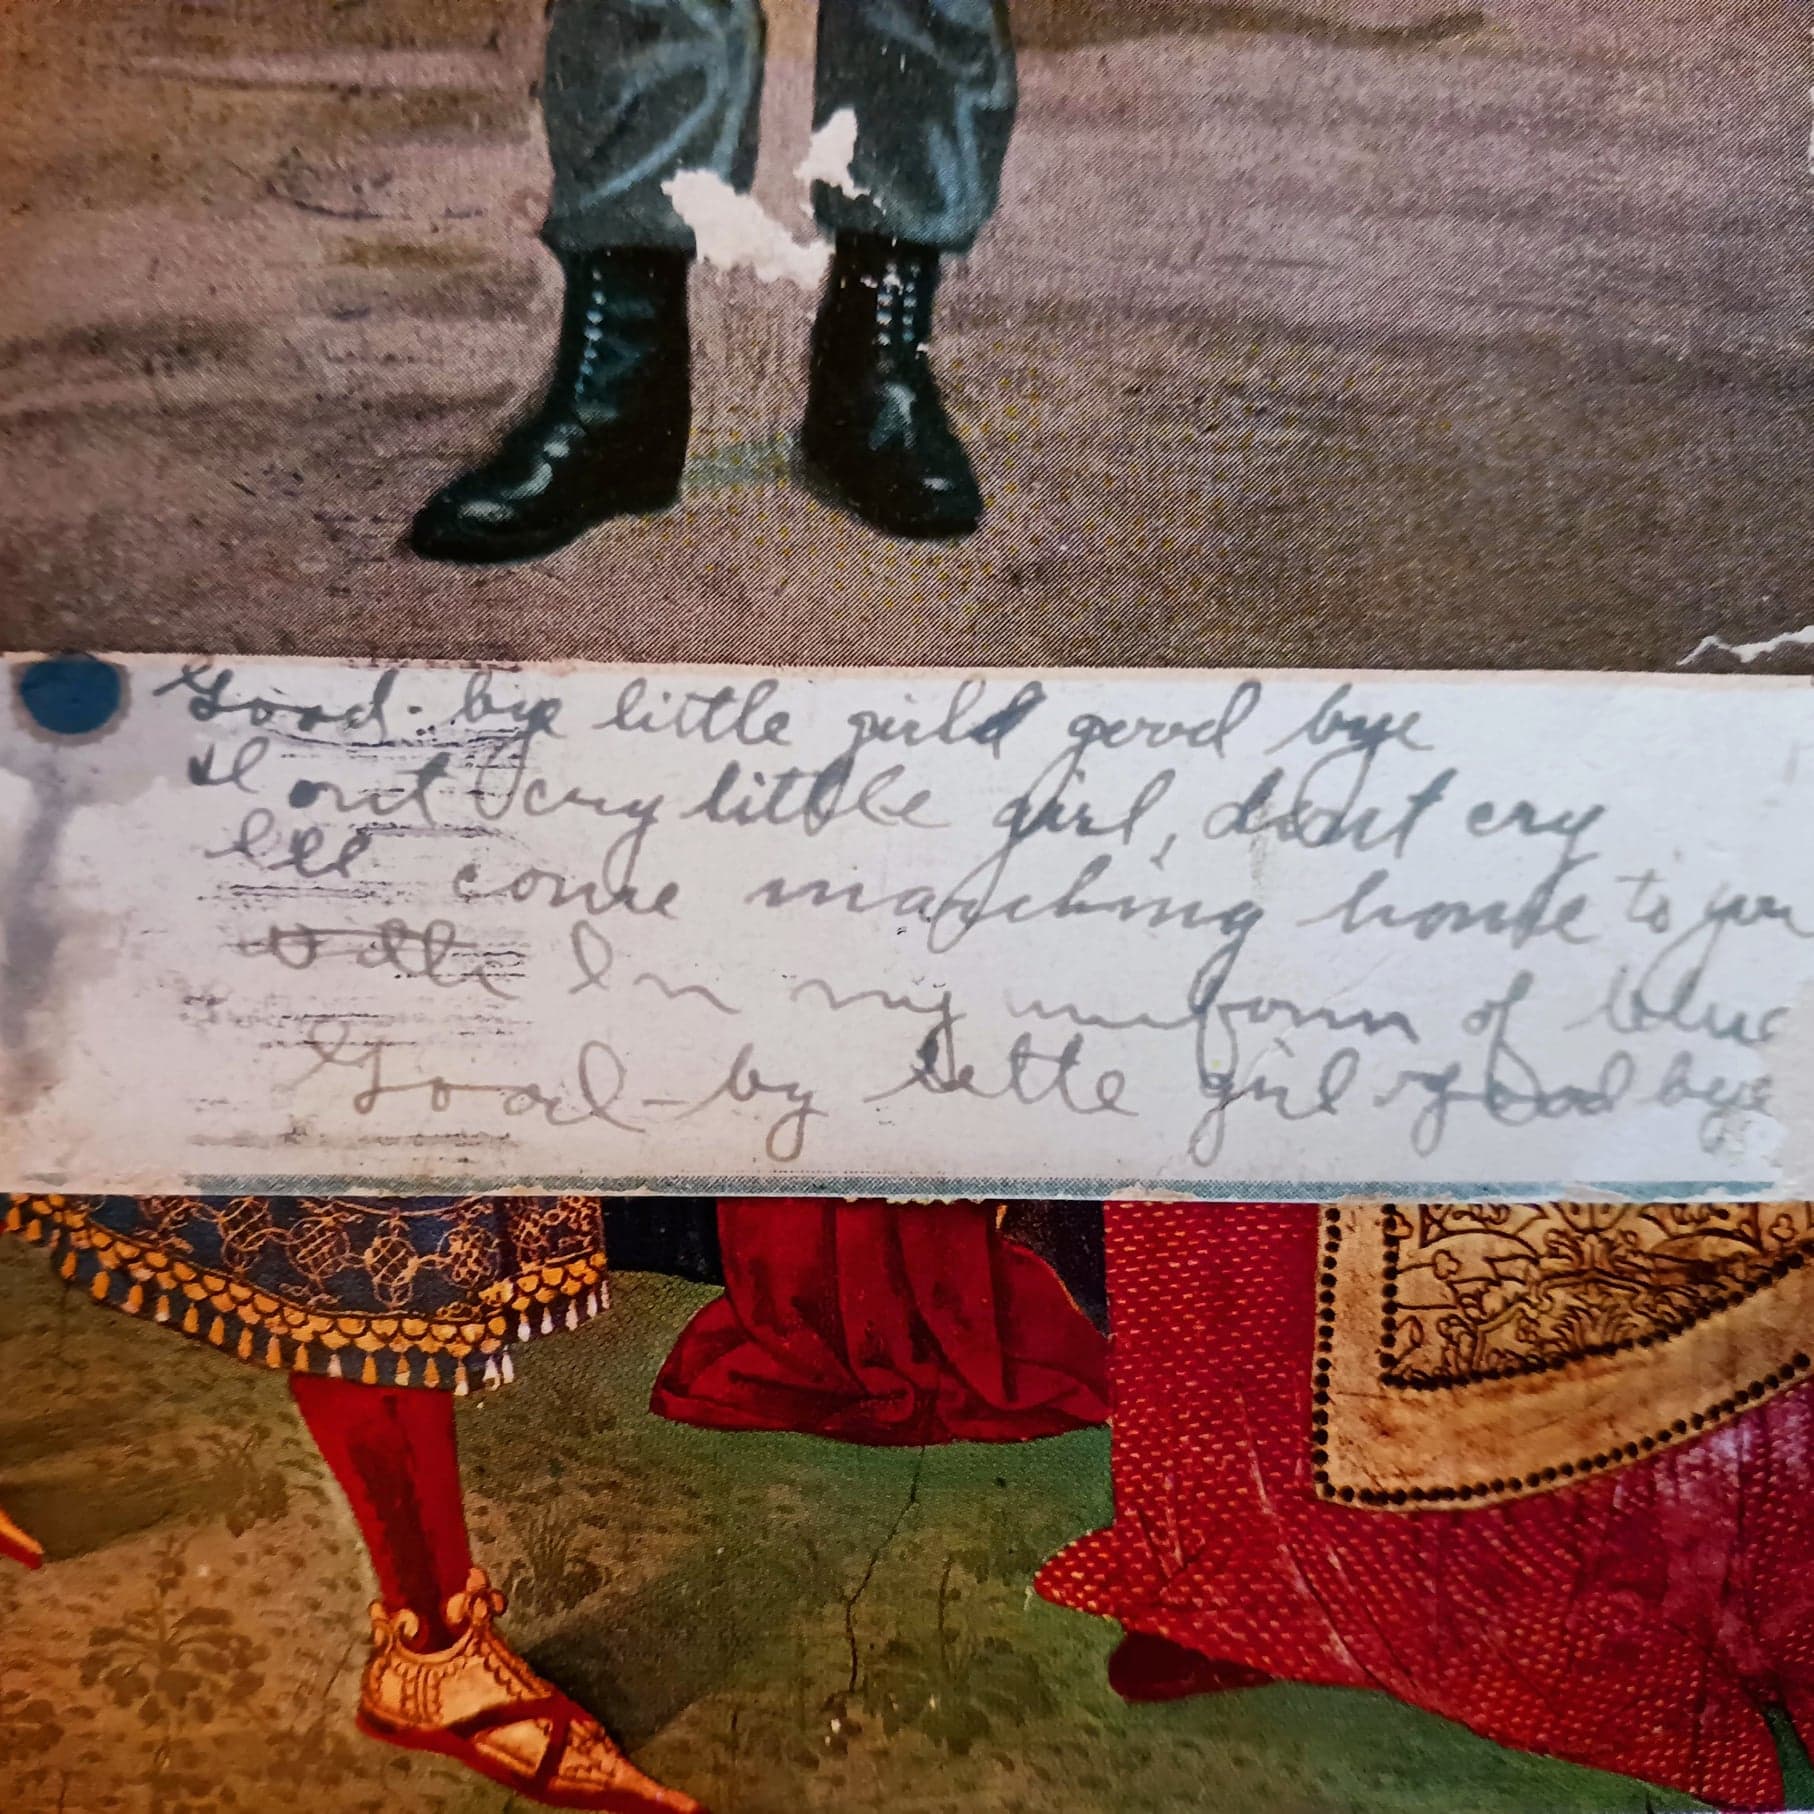 Good-bye little girld good bye
dont cry little girl, dont cry
Ill come marching home to you
In my uniform of blue
Good-by little girl good bye